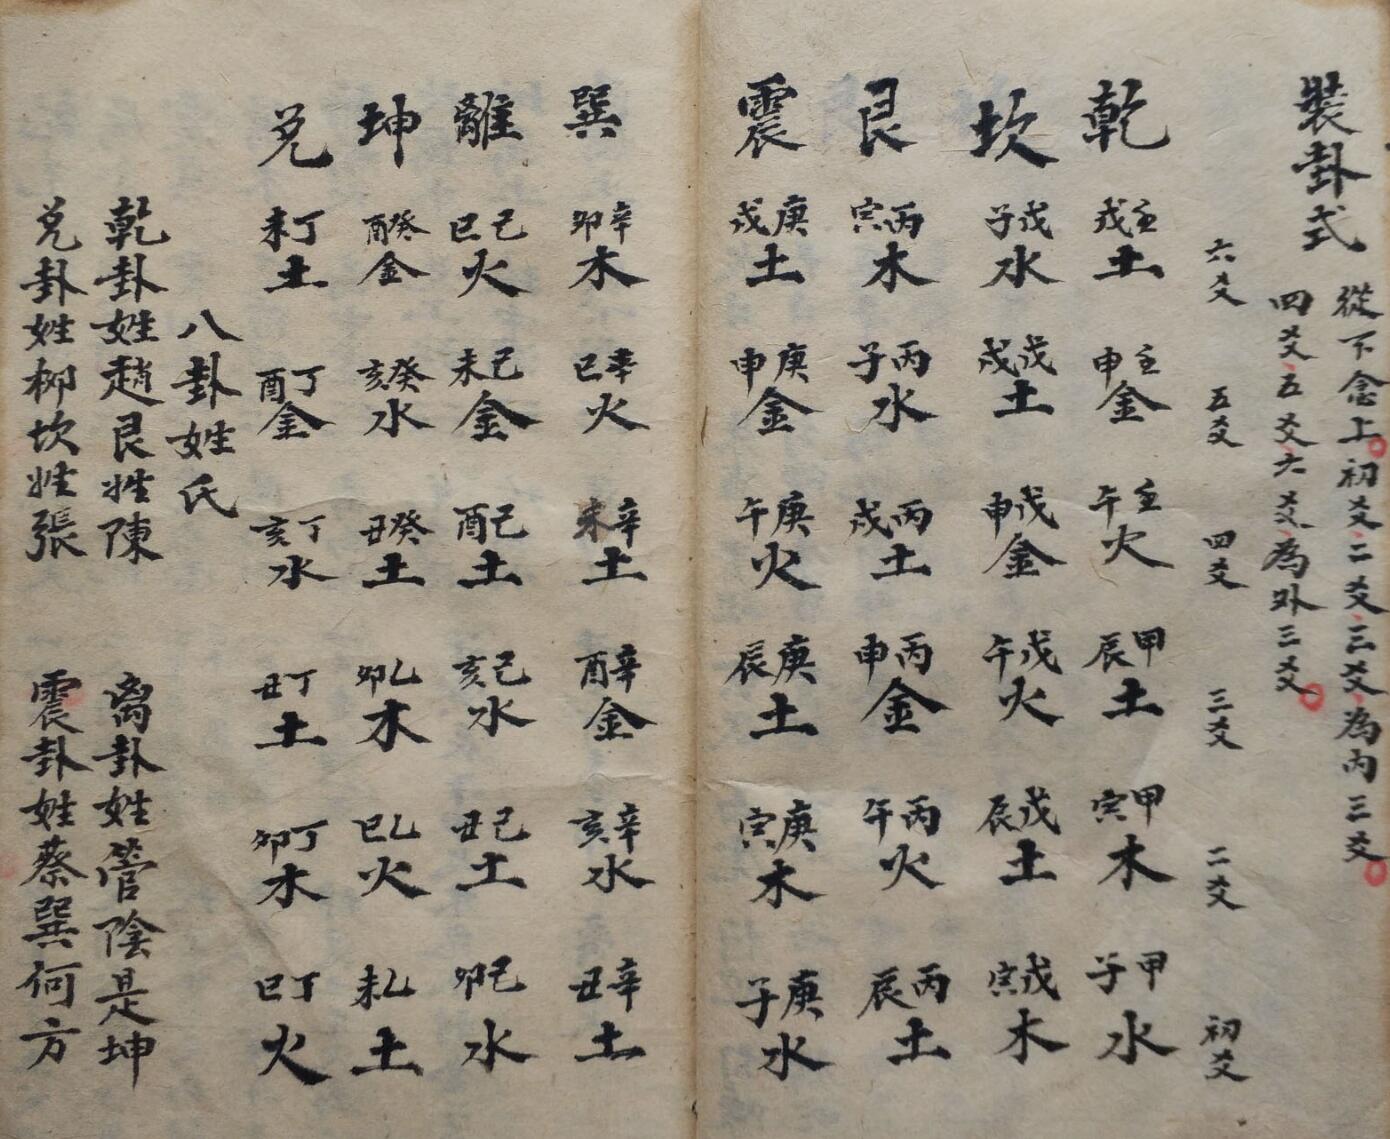 裝卦式
從下念上初爻二爻三爻為內三爻
四爻五爻六爻為外三爻
六爻 五爻 四爻 三爻 二爻 初爻
乾 壬戌土 壬申金 壬午火 甲辰土 甲寅木 甲子水
坎 戊子水 戊戌土 戊申金 戊午火 戊辰土 戊寅木
艮 丙寅木 丙子水 丙戌土 丙申金 丙午火 丙辰土
震 庚戌土 庚申金 庚午火 庚辰土 庚寅木 庚子水
巽 辛卯木 辛巳火 辛未土 辛酉金 辛亥水 辛丑土
離 己巳火 己未金 己酉土 己亥水 己丑土 己卯水
坤 癸酉金 癸亥水 癸丑土 乙卯木 乙巳火 乙未土
兑 丁未土 丁酉金 丁亥水 丁丑土 丁卯木 丁巳火
八卦姓氏
乾卦姓趙艮姓陳 离卦姓管陰是坤
兑卦姓柳坎姓張 震卦姓蔡巽何方